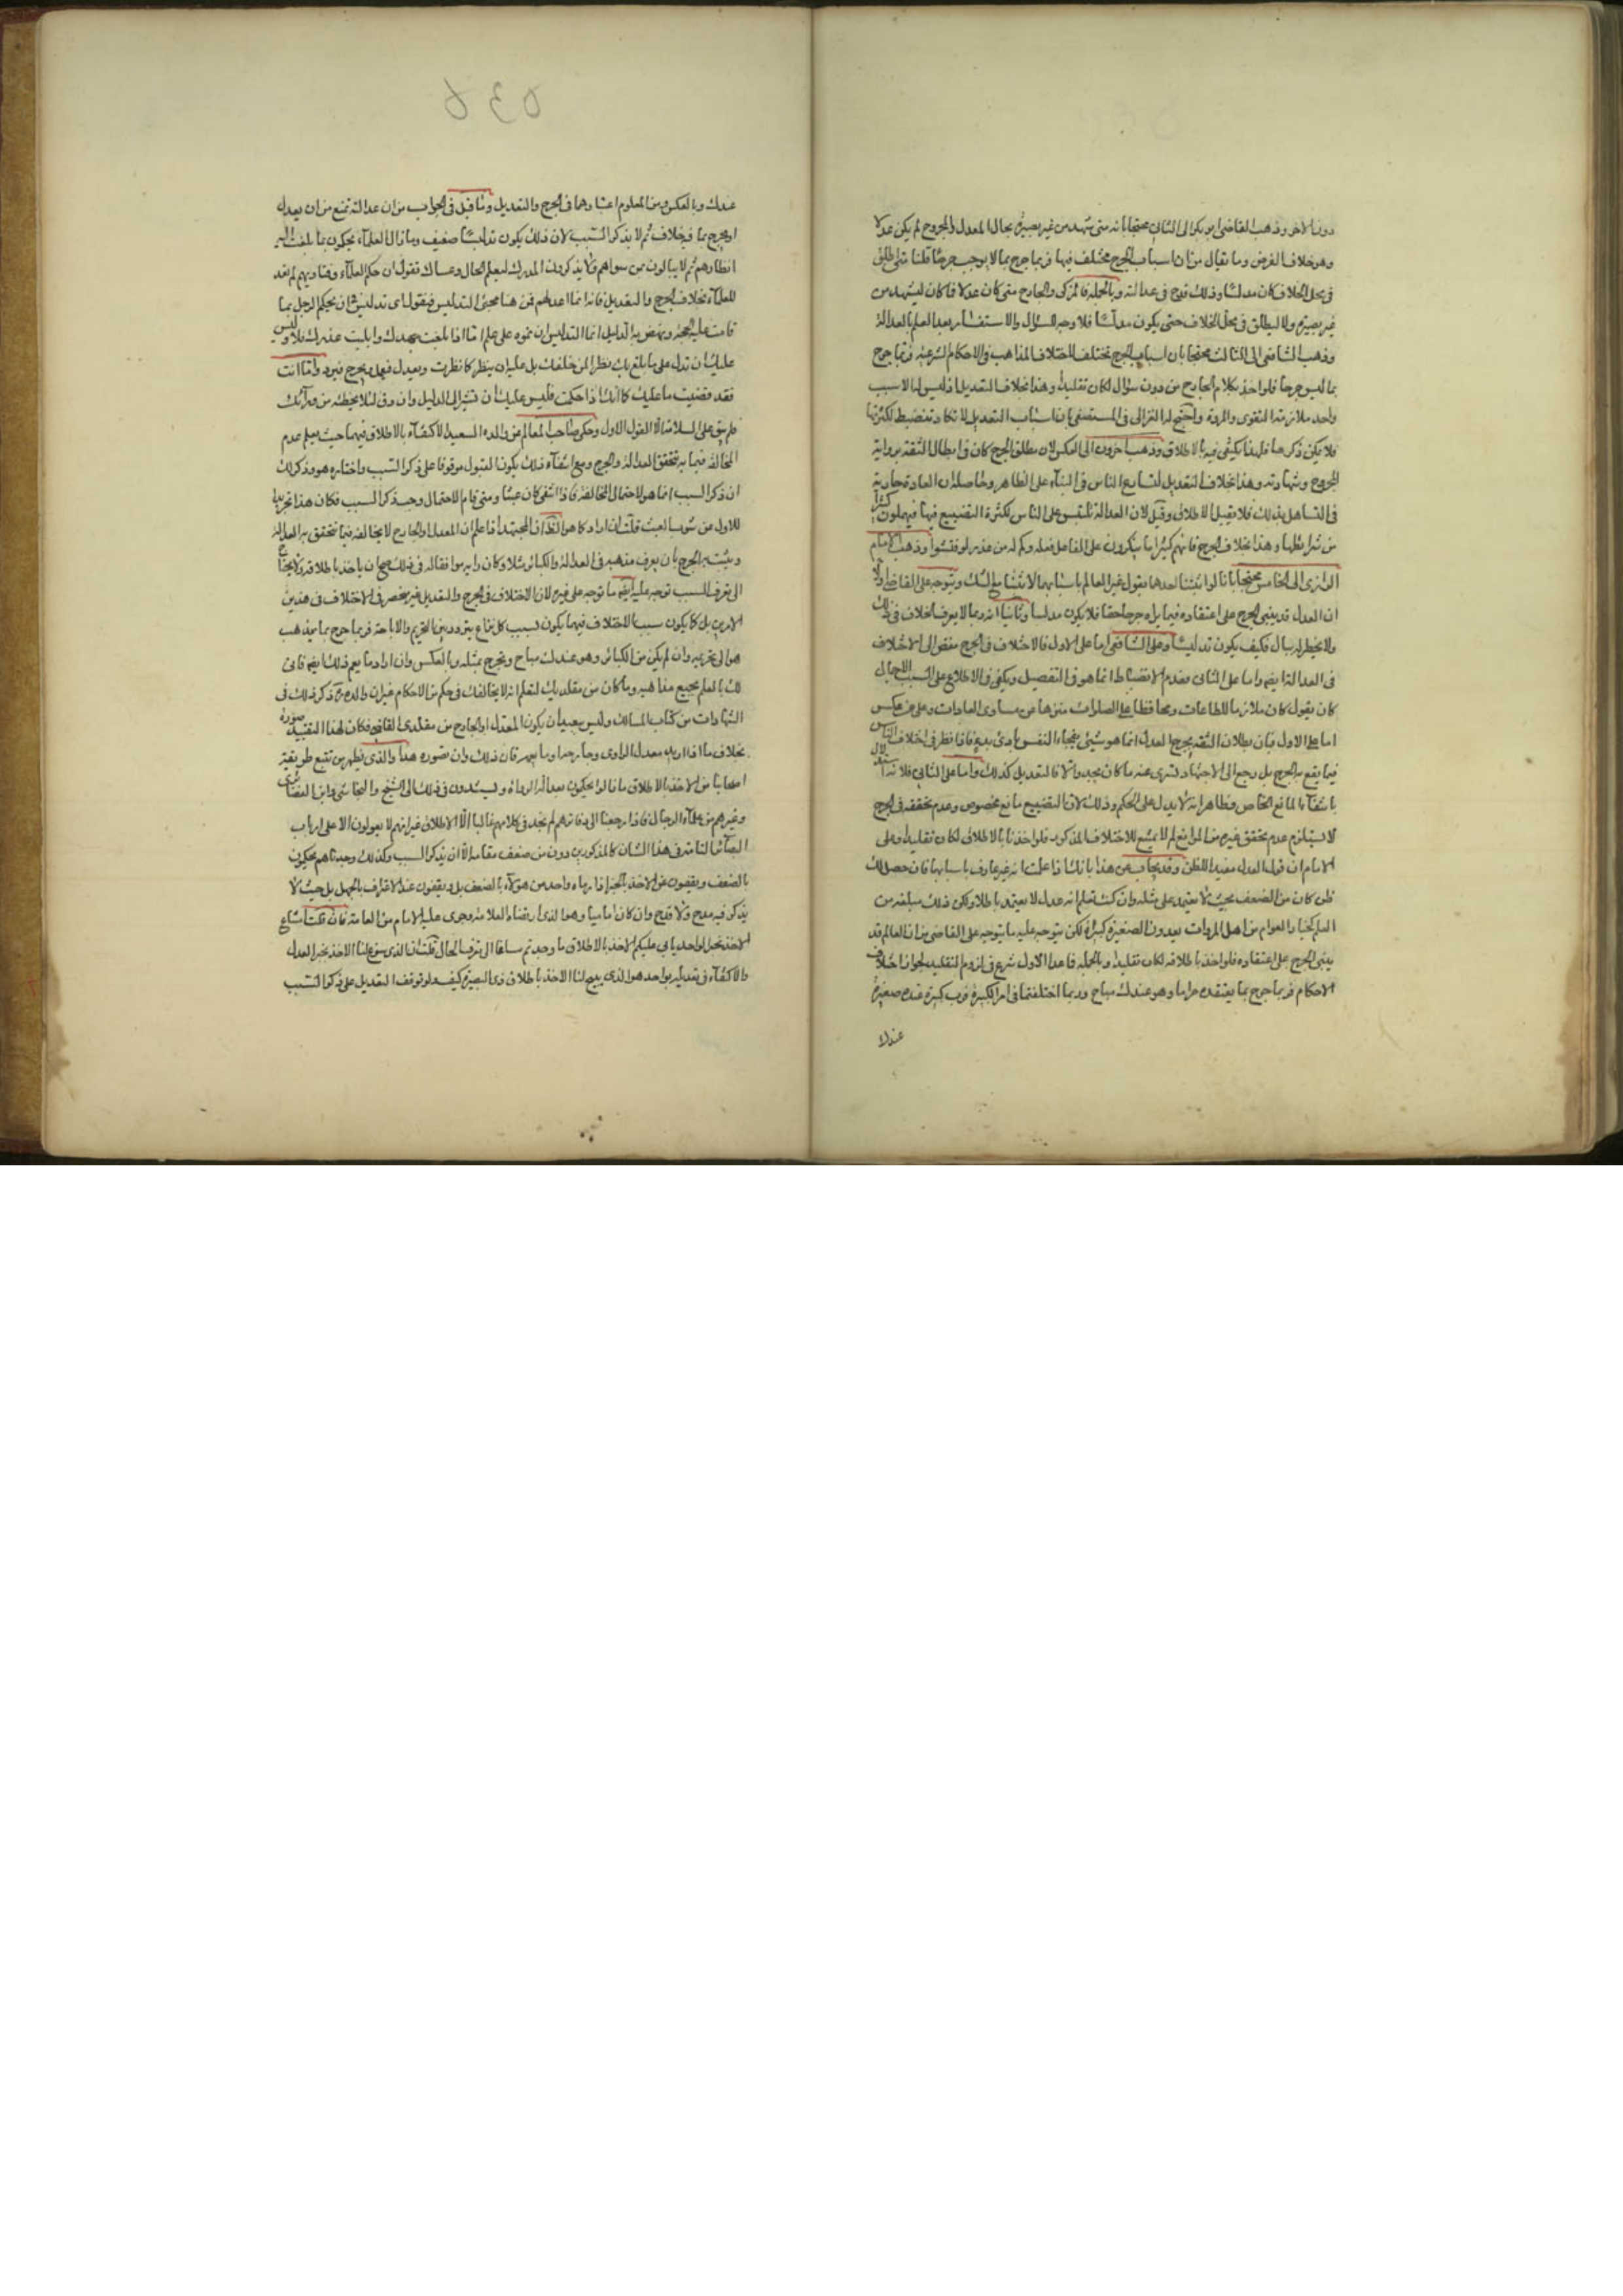 دون الاخر وذهب القاضى ابو بكر الى الثانى محتجا بانه متى شهد من غير بصيرة بحال المعدل والمجروح لم يكن عدلا
وهو خلاف الفرض وما يقال من ان اسباب الجرح مختلف فيها فربما جرح بما لا يوجب جرحا قلنا متى اطلق
فى محل الخلاف كان مدلسا وذلك قدح فى عدالته وبالجملة فالمزكى والجارح متى كان عدلا فما كان ليشهد من
غير بصيرة ولا ليطلق فى محل الخلاف حتى يكون مدلسا فلا وجه للسؤال والاستفسار بعد العلم بالعدالة
وذهب الشافعى الى الثالث محتجا بان اسباب الجرح تختلف لاختلاف المذاهب فى الاحكام الشرعية فربما جرح
بما ليس جرحا فلو اخذ بكلام الجارح من دون سؤال لكان تقليدا وهذا بخلاف التعديل اذ ليس له الا سبب
واحد ملازمة التقوى والمروة واحتج له الغزالى فى المستصفى بان اسباب التعديل لا تكاد تنضبط لكثرتها
فلا يمكن ذكرها فلهذا يكتفى فيه بالاطلاق وذهب اخرون الى العكس لان مطلق الجرح كاف فى ابطال الثقة برواية
المجروح وشهادته وهذا بخلاف التعديل لتسارع الناس فى البناء على الظاهر وحاصله ان العادة جارية
فى التساهل بذلك فلا يقبل الاطلاق وقيل لان العدالة تلتبس على الناس لكثرة التضييع فيها فيهملون كثيرا
من شرايطها وهذا بخلاف الجرح فانهم كثيرا ما ينكرون على الفاعل فعله وكم له من عذر لو فتشوا وذهب الامام
الرازى الى الخامس محتجا بانا لو اثبتنا احدهما بقول غير العالم باسبابهما لاثبتنا مع الشك ويتوجه على القاضى اولا
ان العدل قد يبنى الجرح على اعتقاده فيما يراه جرحا حقا فلا يكون مدلسا وثانيا انه ربما لا يعرف الخلاف فى ذلك
ولا يخطر له ببال فكيف يكون تدليسا وعلى الشافعى اما على الاول فالاختلاف فى الجرح مفض الى الاختلاف
فى العدالة ايضا واما على الثانى فعدم الانضباط انما هو فى التفصيل ويكفى فى الاطلاع على السبب الاجمال
كان يقول كان ملازما للطاعات ومحافظا على الصلوات منزها من مساوى العادات وعلى من عكس
اما على الاول فبان بطلان الثقة بجرح العدل انما هو شيئ يفجاء النفس بادى بدء فاذا نظر فى اختلاف الناس
فيما يقع به الجرح بل رجع الى الاجتهاد لسرى عنه ما كان يجد والا فالتعديل كذلك واما على الثانى فلانه استدلال
بانتفاء المانع الخاص وظاهر انه لا يدل على الحكم وذلك لان التضييع مانع مخصوص وعدم تحققه فى الجرح
لا يستلزم عدم تحقق غيره من الموانع لم لا يمنع للاختلاف المذكور فلو اخذنا بالاطلاق لكان تقليدا وعلى
الامام ان قول العدل مفيد للظن وقد يجاب عن هذا بانك اذا علمت انه غير عارف باسبابها فان حصل لك
ظن كان من الضعف بحيث لا يعتمد على مثله وان كنت تعلم انه عدل لا يعتمد باطلا ولكن ذلك مبلغه من
العلم كخيار العوام من اهل المروات يعدون الصغيرة كبيرة لكن يتوجه عليه ما يتوجه على القاضى من ان العالم قد
يبنى الجرح على اعتقاده فلو اخذ باطلاقه لكان تقليدا وبالجملة فما عدا الاول شرع فى لزوم التقليد لجواز اختلاف
الاحكام فربما جرح بما يعتقده حراما وهو عندك مباح وربما اختلفتما فى امر الكبيرة فرب كبيرة عنده صغيرة
عندك
٥٣٥
عندك وبالعكس ومن المعلوم اعتبارهما فى الجرح والتعديل وما قيل فى الجواب من ان عدالته تمنع من ان يعدل
او يجرح بما فيه خلاف ثم لا يذكر السبب لان ذلك يكون تدليسا ضعيف وما زال العلماء يحكون بما بلغت اليه
انظارهم ثم لا يبالون من سواهم ولا يذكرون المدرك ليعلم الحال وعساك تقول ان حكم العلماء وفتاويهم لم تعد
للعلماء بخلاف الجرح والتعديل فانه انما اعد لهم فمن هنا مجئ التدليس فنقول اى تدليس فى ان يحكم الرجل بما
قامت عليه الحجة ونهض به الدليل انما التدليس ان تموه على علم اما اذا بلغت جهدك وابليت عذرك فلا وليس
عليك ان تدل على ما بلغ بك نظر المن خلفك بل عليه ان ينظر كما نظرت ويعدل فيعدل ويجرح فيرد واما انت
فقد قضيت ما عليك كما انك اذا حكمت فليس عليك ان تشير الى الدليل وان دق لئلا يخطئه من ورائك
فلم يبق على السلامة الا القول الاول وحكى صاحب المعالم عن والده السعيد الاكتفاء بالاطلاق فيهما حيث يعلم عدم
المخالفة فيما به تتحقق العدالة والجرح ومع انتفاء ذلك يكون القبول موقوفا على ذكر السبب واختاره هو وذكر لك
ان ذكر السبب انما هو لاحتمال المخالفة فاذا انتفى كان عبثا ومتى قام الاحتمال وجب ذكر السبب فكان هذا تحريرا
للاول من شوب العبث قلت ان اراد كما هو الظ اذا المجتهد اذا علم ان المعدل او الجارح لا يخالفه فيما تتحقق به العدالة
ويثبت به الجرح بان يعرف مذهبه فى العدالة والكبائر مثلا وكان رايه موافقا له فى ذلك صح ان ياخذ باطلاقه ولا يحتاج
الى تعرف السبب توجه عليه ايضا ما توجه على غيره لان الاختلاف فى الجرح والتعديل غير منحصر فى الاختلاف فى هذين
الامرين بل كما يكون سبب الاختلاف فيهما يكون بسبب كل نزاع يتردد بين التحريم والاباحة فربما جرح بما يذهب
هو الى تحريمه وان لم يكن من الكبائر وهو عندك مباح ويجرح بمثله وبالعكس وان اراد ما يعم ذلك ايضا فانى
لك بالعلم بجميع مذاهبه وما كان من مقلديك لتعلم انه لا يخالفك فى حكم من الاحكام غير ان والده ره ذكر ذلك فى
الشهادات من كتاب المسالك وليس ببعيد ان يكون المعدل او الجارح من مقلدى القاضى فكان لهذا التقييد صورة
بخلاف ما اذا اريد معدل الراوى وجارحه او ما يعمه فان ذلك وان تصوره هذا والذى يظهر من تتبع طريقة
اصحابنا من الاخذ بالاطلاق ما زالوا يحكون بعدالة الرواة ويستندون فى ذلك الى الشيخ والنجاشى وابن الغضائرى
وغيرهم من علماء الرجال فاذا رجعنا الى دفاترهم لم نجد فى كلامهم غالبا الا الاطلاق غير انهم لا يعولون الا على ارباب
البصائر النافذة فى هذا الشان كالمذكورين دون من ضعف مقامه الا ان يذكر السبب وكذلك وجدناهم يحكمون
بالضعف ويقفون عن الاخذ بالخبر اذا رماه واحد من هؤلاء بالضعف بل ويقفون عند الاعتراف بالجهل بل حيث لا
يذكر فيه مدح ولا قدح وان كان اماميا وهو الذى ارتضاه العلامة وجرى عليه الامام من العامة فان قلت امتناع
الاخذ بخبر الواحد يابى عليكم الاخذ بالاطلاق ما وجدتم مساغا الى تعرف الحال قلت ان الذى سوغ لنا الاخذ بخبر العدل
والاكتفاء فى تعديله بواحد هو الذى يبيح لنا الاخذ باطلاق ذى البصيرة كيف ولو توقف التعديل على ذكر السبب